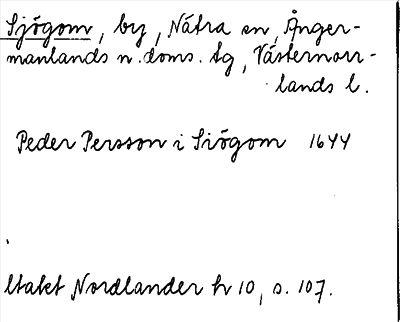 Sjögom, by, Nätra sn, Ånger-
manlands n. doms. tg, Västernorr-
lands l.
Peder Persson i Siögom 1644
Utakt Nordlander hr 10, s. 107.